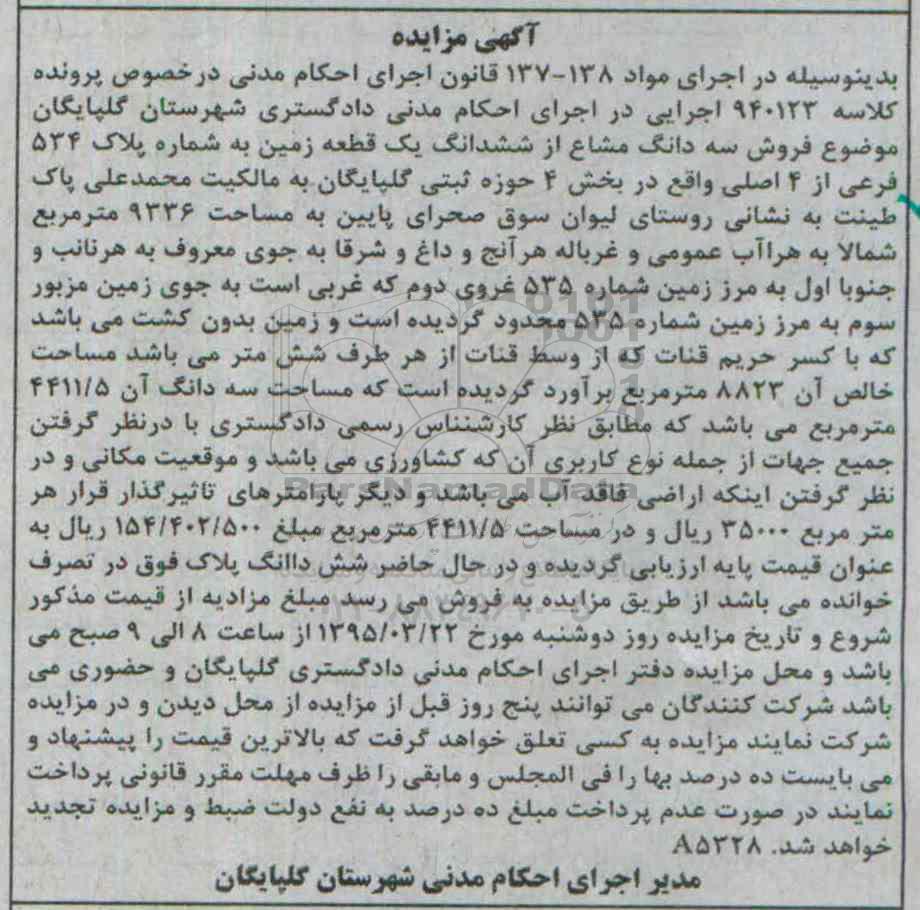 آگهی مزایده
بدینوسیله در اجرای مواد ۱۳۸-۱۳۷ قانون اجرای احکام مدنی درخصوص پرونده
کلاسه ۹۴۰۱۲۳ اجرایی در اجرای احکام مدنی دادگستری شهرستان گلپایگان
موضوع فروش سه دانگ مشاع از ششدانگ یک قطعه زمین به شماره پلاک ۵۳۴
فرعی از ۴ اصلی واقع در بخش ۴ حوزه ثبتی گلپایگان به مالکیت محمدعلی پاک
طینت به نشانی روستای لیوان سوق صحرای پایین به مساحت ۹۳۳۶ مترمربع
شمالا به هراآب عمومی و غرباله هرآنج و داغ و شرقا به جوی معروف به هرنانب و
جنوبا اول به مرز زمین شماره ۵۳۵ غروی دوم که غربی است به جوی زمین مزبور
سوم به مرز زمین شماره ۵۳۵ محدود گردیده است و زمین بدون کشت می باشد
که با کسر حریم قنات که از وسط قنات از هر طرف شش متر می باشد مساحت
خالص آن ۸۸۲۳ مترمربع برآورد گردیده است که مساحت سه دانگ آن ۴۴۱۱/۵
مترمربع می باشد که مطابق نظر کارشنناس رسمی دادگستری با درنظر گرفتن
جمیع جهات از جمله نوع کاربری آن که کشاورزی می باشد و موقعیت مکانی و در
نظر گرفتن اینکه اراضی فاقد آب می باشد و دیگر پارامترهای تاثیرگذار قرار هر
متر مربع ۳۵۰۰۰ ریال و در مساحت ۴۴۱۱/۵ مترمربع مبلغ ۱۵۴/۴۰۲/۵۰۰ ریال به
عنوان قیمت پایه ارزیابی گردیده و در حال حاضر شش داانگ پلاک فوق در تصرف
خوانده می باشد از طریق مزایده به فروش می رسد مبلغ مزادیه از قیمت مذکور
شروع و تاریخ مزایده روز دوشنبه مورخ ۱۳۹۵/۰۳/۲۲ از ساعت ۸ الی ۹ صبح می
باشد و محل مزایده دفتر اجرای احکام مدنی دادگستری گلپایگان و حضوری می
باشد شرکت کنندگان می توانند پنج روز قبل از مزایده از محل دیدن و در مزایده
شرکت نمایند مزایده به کسی تعلق خواهد گرفت که بالاترین قیمت را پیشنهاد و
می بایست ده درصد بها را فی المجلس و مابقی را ظرف مهلت مقرر قانونی پرداخت
نمایند در صورت عدم پرداخت مبلغ ده درصد به نفع دولت ضبط و مزایده تجدید
خواهد شد. A۵۳۲۸
مدیر اجرای احکام مدنی شهرستان گلپایگان
ParsNamadData